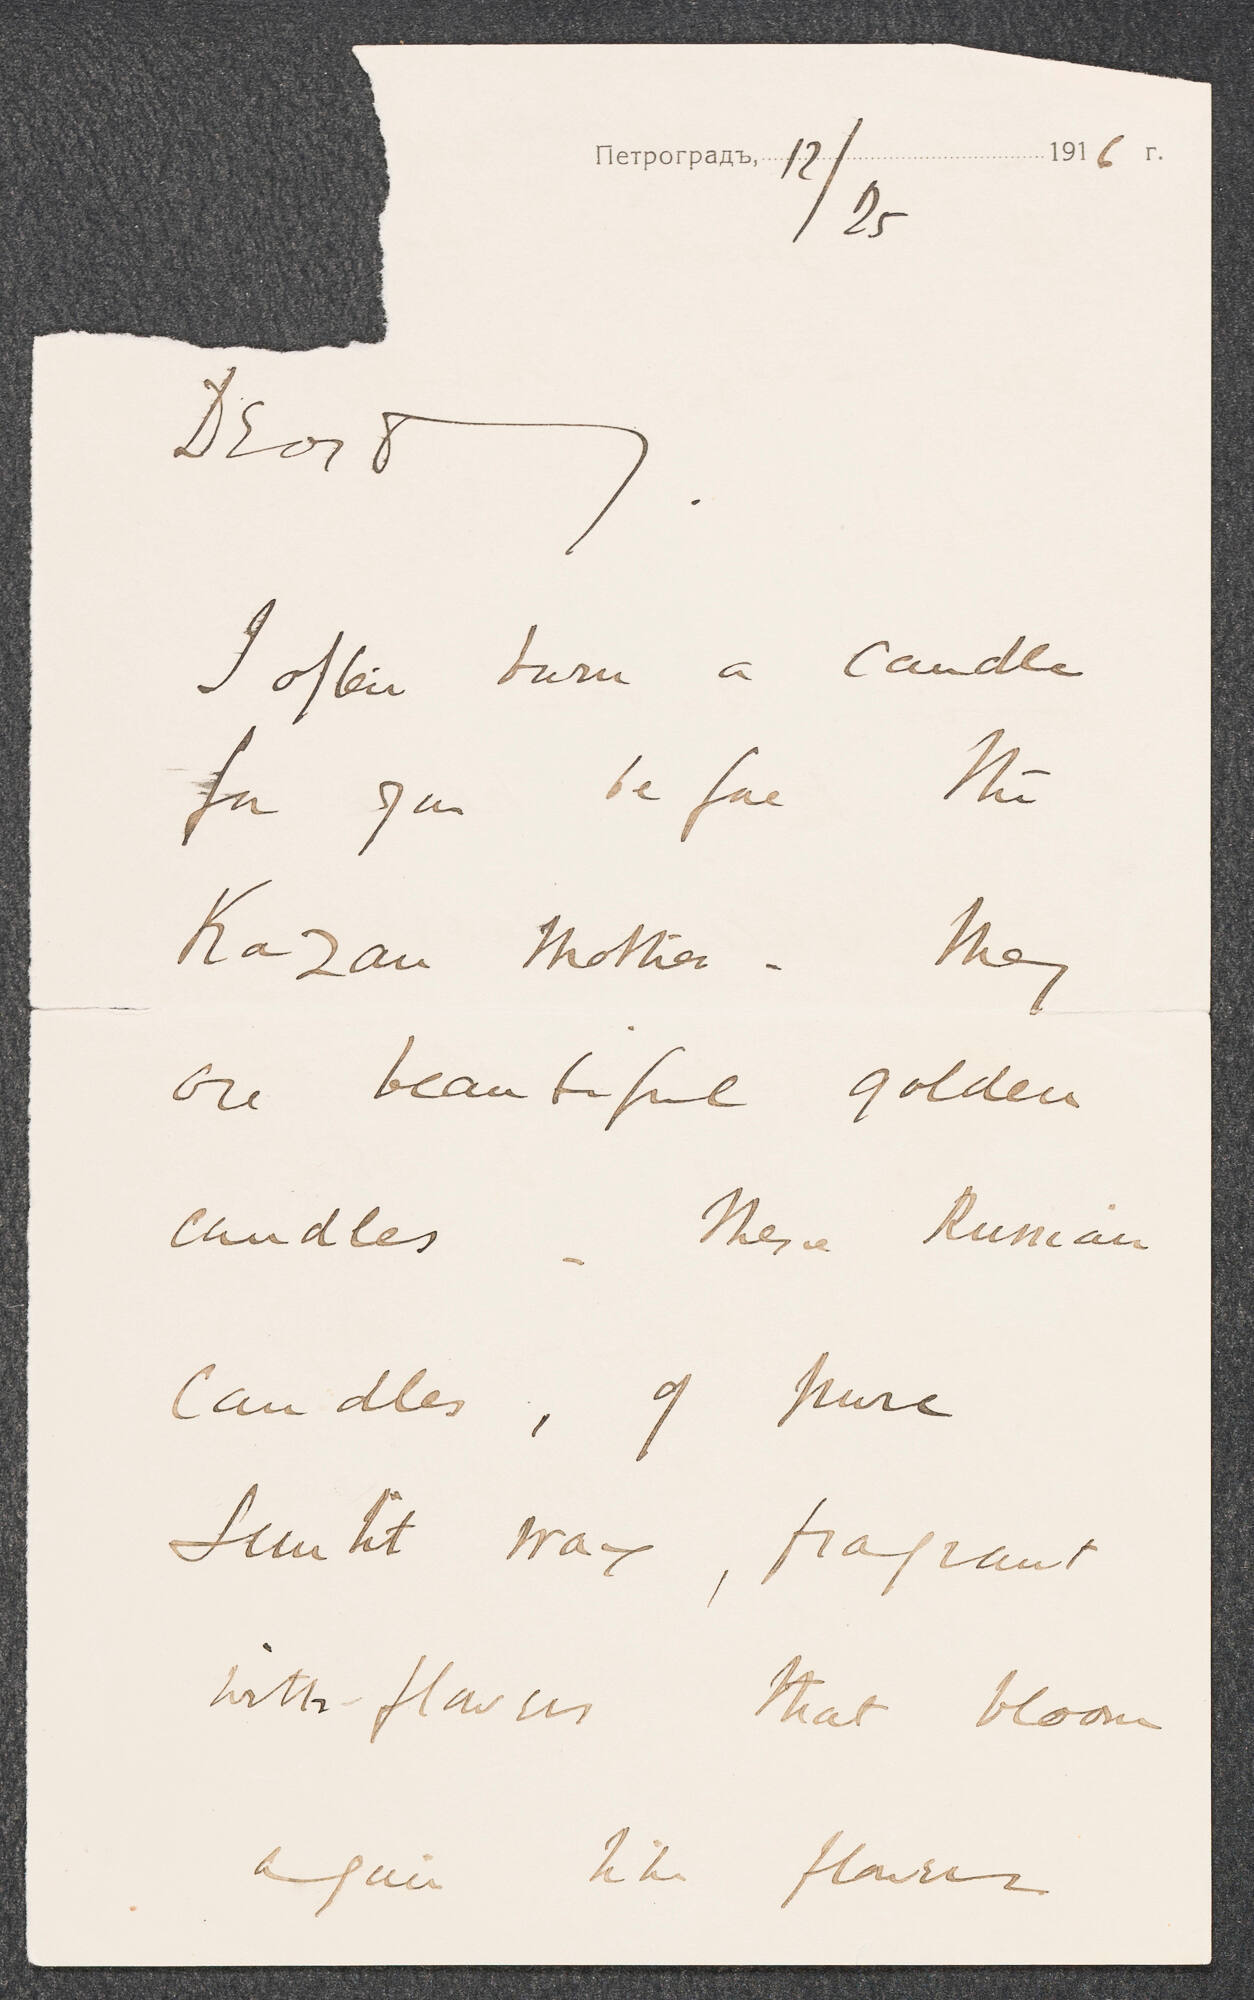 Петроградъ, 12/25 1916 г.
Dear
I often burn a candle
for you before the
Kazan Mother - They
are beautiful golden
candles - These Russian
Candles, of pure
Sunlit wax, fragrant
with flowers that bloom
again like flowers